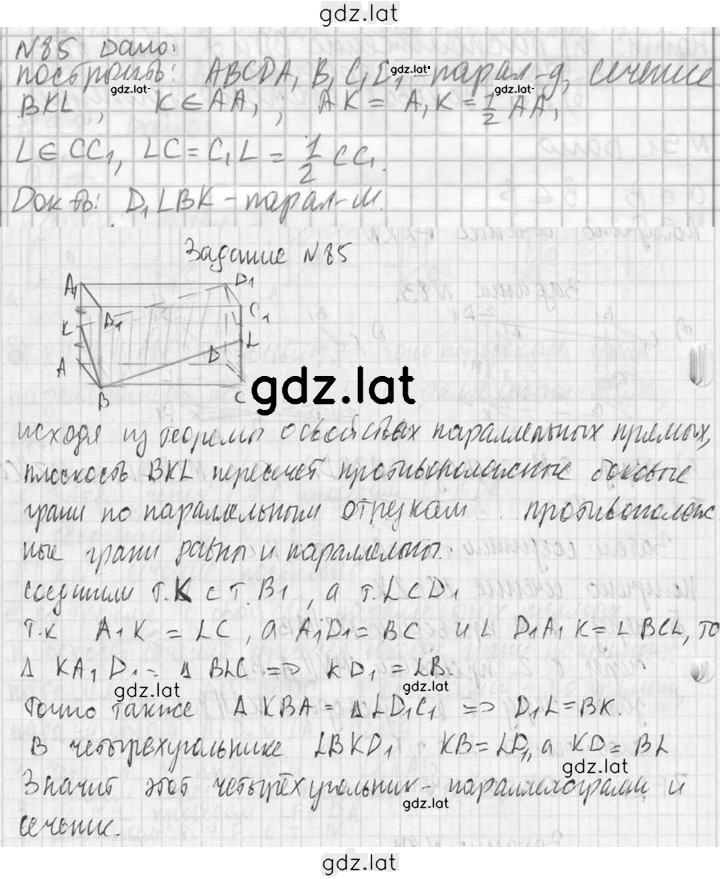 gdz.lat
N85 Дано:
построить: ABCDA, B, C, D, -парал-д, сечение
gdz.lat
gdz.lat
BKL, K∈AA₁; AK = A₁K = 1/2 AA₁
gdz.lat
L∈CC₁, LC = C₁L = 1/2 CC₁
gdz.lat
Док-ть: D₁LBK - парал-м.
Задание N85
A₁ D₁
B₁ C₁
K L
A D
B C
gdz.lat
исходя из теоремы о свойствах параллельных прямых,
плоскость BKL пересечет противоположные боковые
грани по параллельным отрезкам противополож
ные грани равны и параллельны.
соединим т.K с т.B₁, а т.L с D₁
т.к A₁K = LC, а A₁D₁ = BC и ∠ D₁A₁K = ∠BCL, то
Δ KA₁D₁ = Δ BLC => KD₁ = LB.
gdz.lat
gdz.lat
Точно также Δ KBA = ΔLD₁C₁ => D₁L = BK.
В четырехугольнике LBKD₁ KB = LD₁, а KD = BL
gdz.lat
Значит этот четырёхугольник - параллелограмм и
gdz.lat
сечение.
gdz.lat